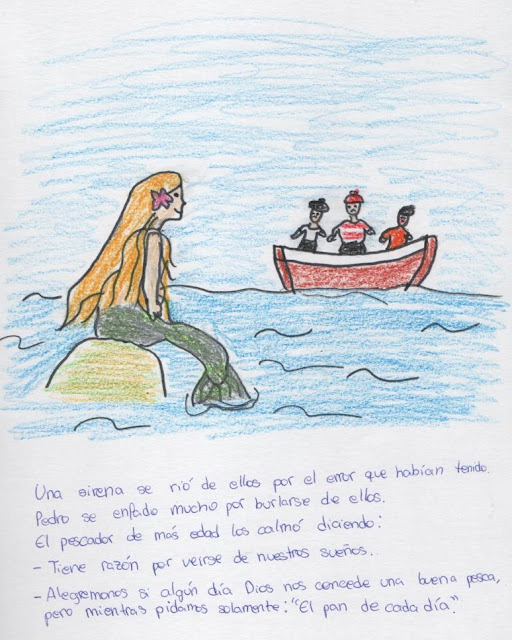 Una sirena se rió de ellos por el error que habían tenido.
Pedro se enfado mucho por burlarse de ellos.
El pescador de más edad los calmó diciendo:
- Tiene razón por veirse de nuestros sueños.
- Alegremonos si algún día Dios nos concede una buena pesca,
pero mientras pidamos solamente: "El pan de cada día".